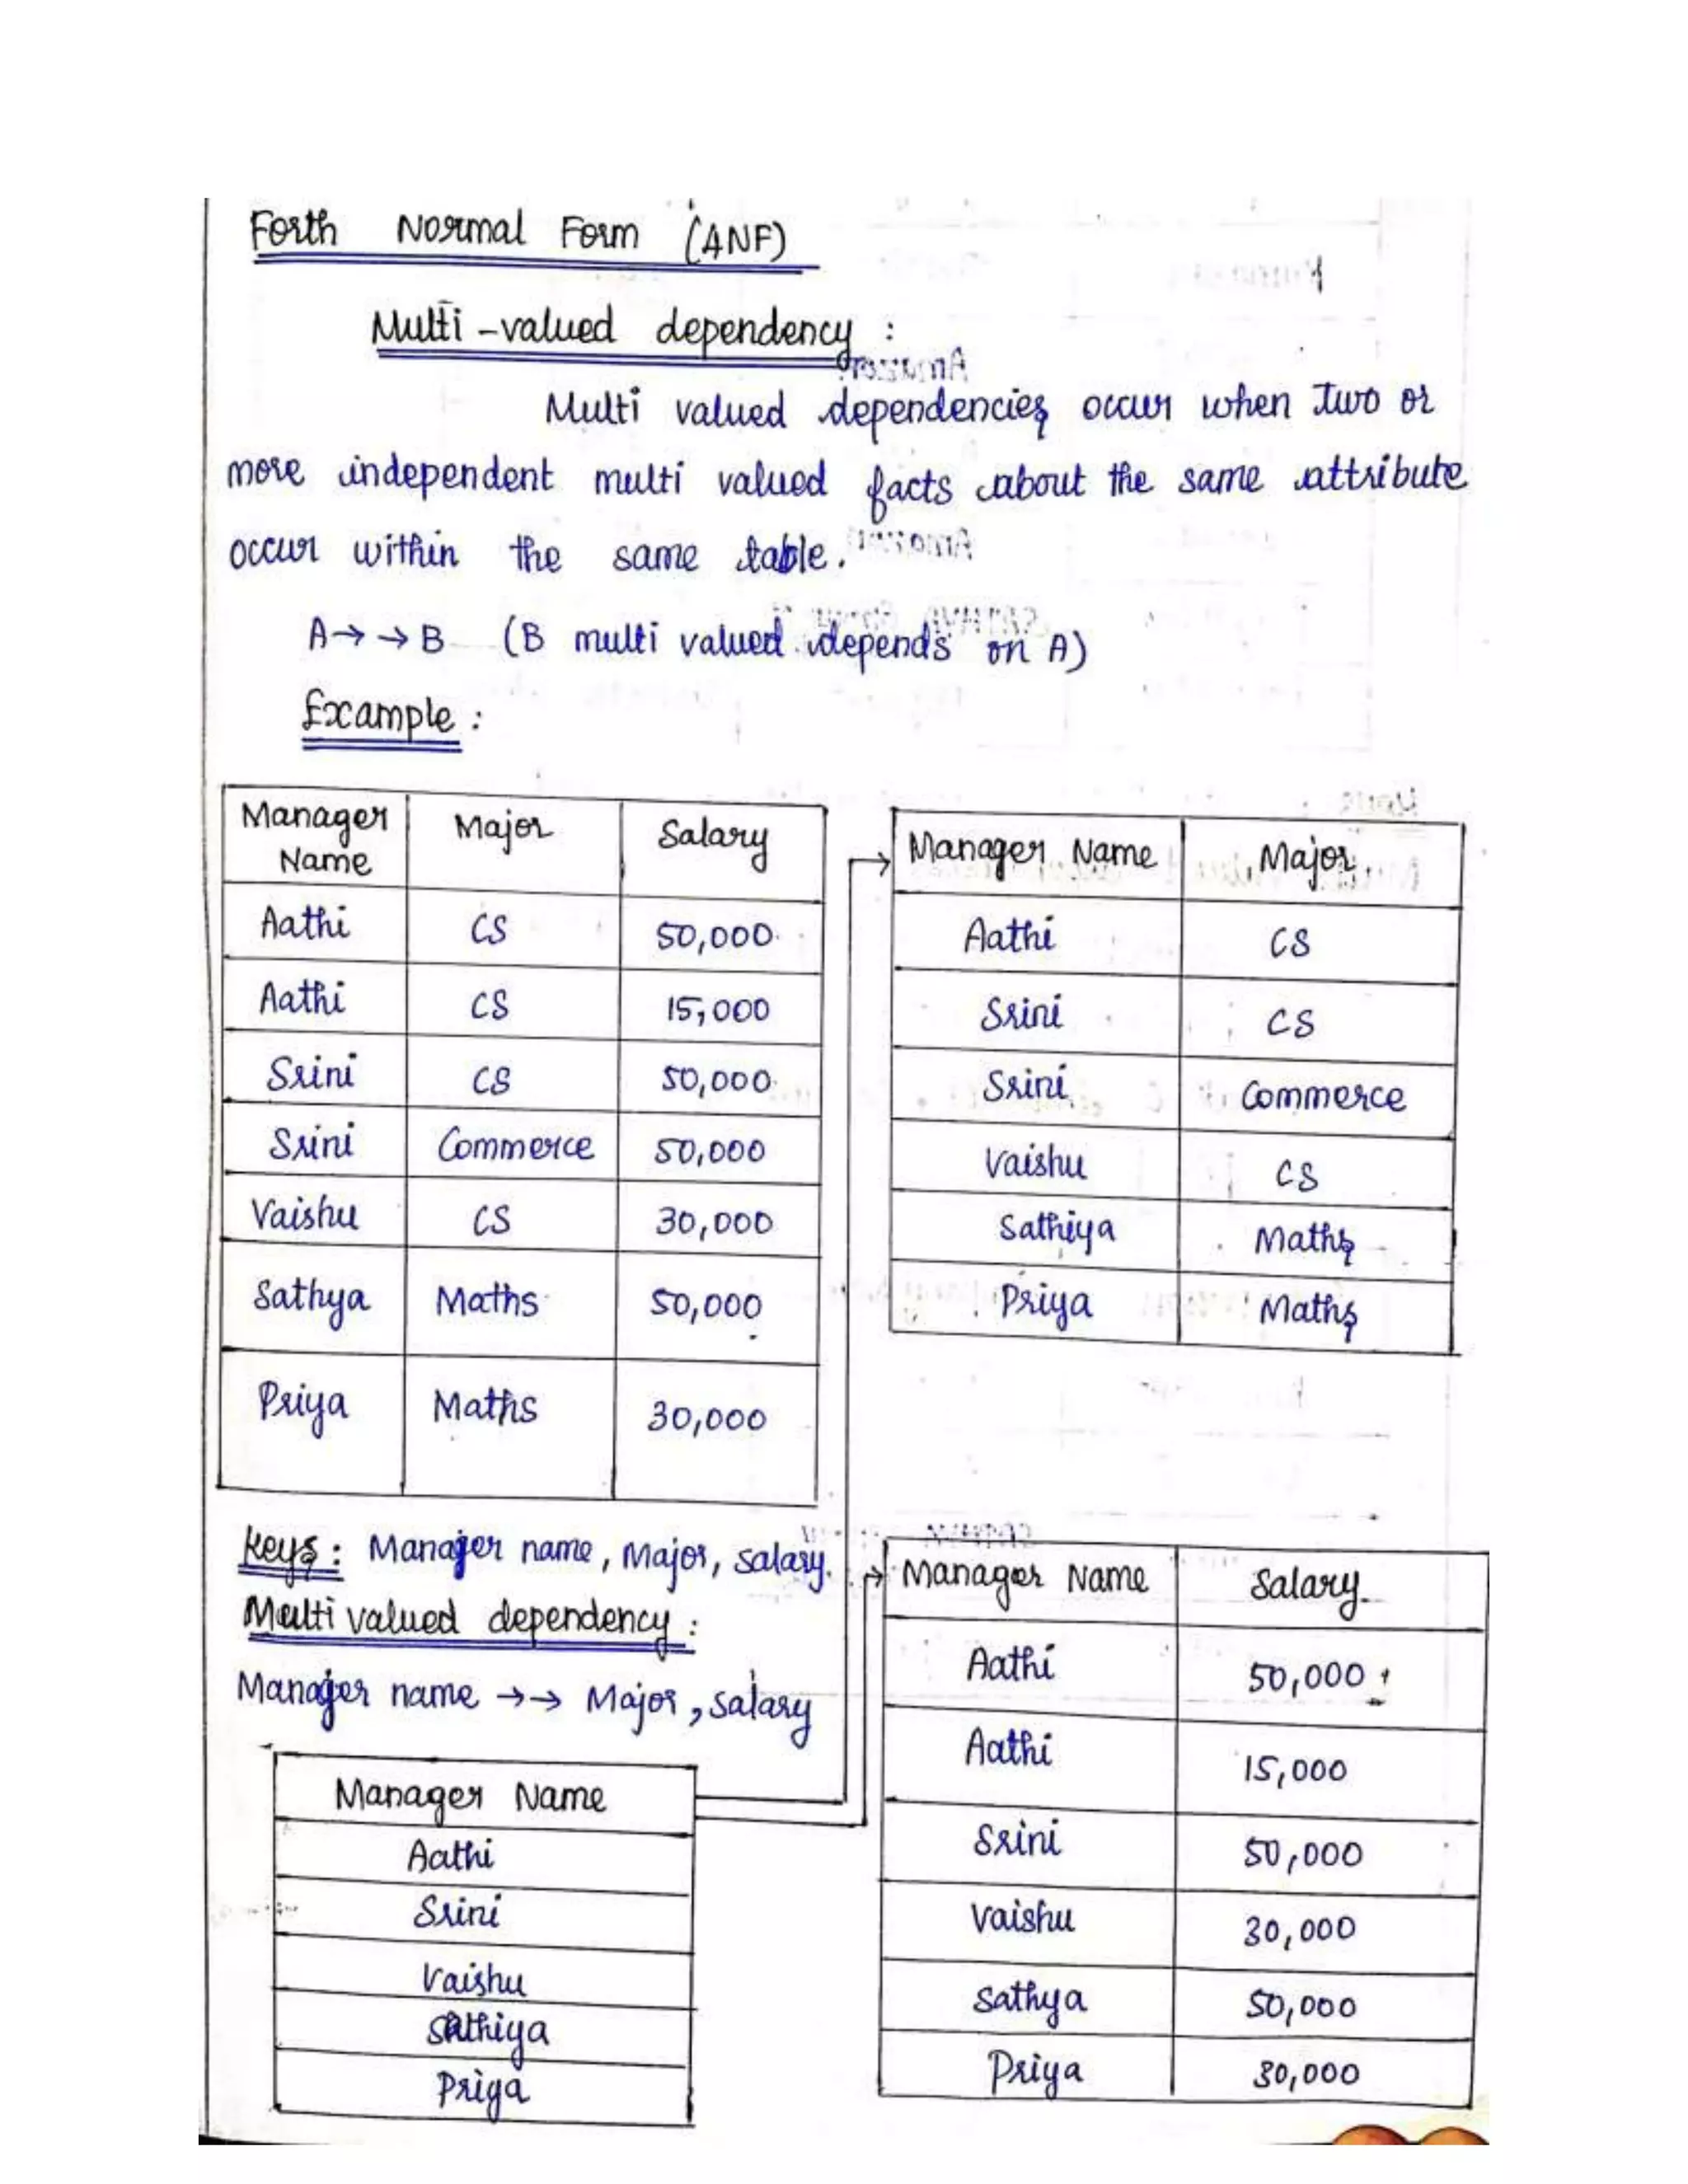 Forth Normal Form (4NF)
Multi-valued dependency :
Multi valued dependencies occur when Two or
more independent multi valued facts about the same attribute
occur within the same table.
A→→B (B multi valued depends on A)
Example :
Manager Name Major Salary
Aathi CS 50,000
Aathi CS 15,000
Srini CS 50,000
Srini Commerce 50,000
Vaishu CS 30,000
Sathya Maths 50,000
Priya Maths 30,000
Manager Name Major
Aathi CS
Srini CS
Srini Commerce
Vaishu CS
Sathiya Maths
Priya Maths
Keys : Manager name, Major, salary.
Multi valued dependency :
Manager name →→ Major, salary
Manager Name
Aathi
Srini
Vaishu
Sathiya
Priya
Manager Name Salary
Aathi 50,000
Aathi 15,000
Srini 50,000
Vaishu 30,000
Sathya 50,000
Priya 30,000